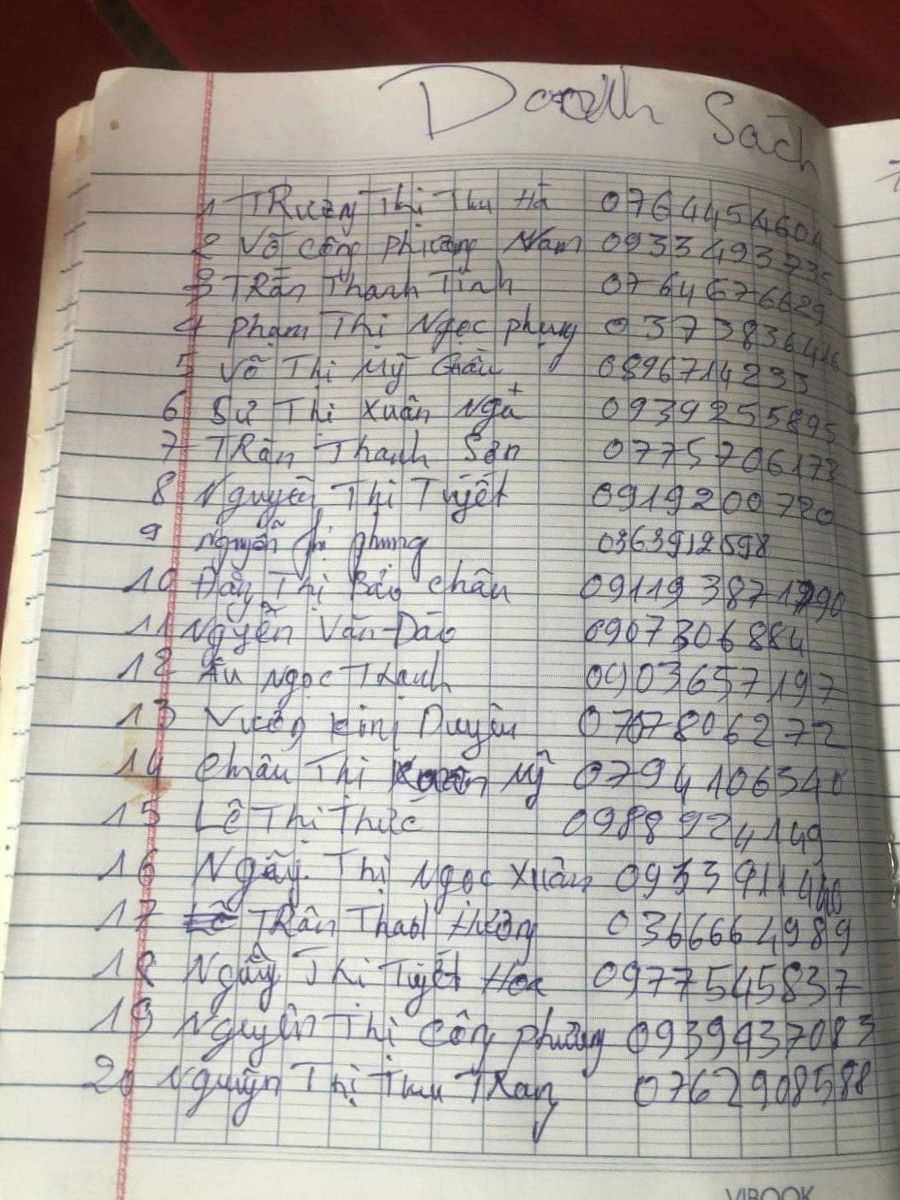 Danh Sách
1 Trương Thị Thu Hà 0764454604
2 Võ Công Phương Nam 0933493735
3 Trần Thanh Tính 0764676629
4 Phạm Thị Ngọc Phụng 0373836416
5 Võ Thị Mỹ Châu 0896714233
6 Sử Thị Xuân Ngà 0939255895
7 Trần Thanh Sơn 0775706173
8 Nguyễn Thị Tuyết 0919200720
9 Nguyễn Thị Phụng 0363912598
10 Đặng Thị Bảo Châu
11 Nguyễn Văn Dảo 0907306884
12 Âu Ngọc Thanh 0903657197
13 Vương Duyên
14 Châu Thị Mỹ 0794106340
15 Lê Thị Thức 0988924149
16 Thị Ngọc Xuân
17 Trần 0366664989
18 Thị Tuyết Hoa 0977545837
19 Nguyễn Thị Công Phượng 0939437083
20 Nguyễn Thị Thu Trang 0762908588
VIBOOK